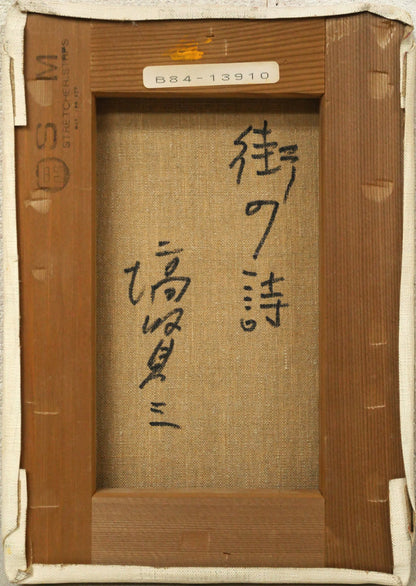 B84-13910
S M
STRETCHER STRIPS
街の詩
塙賢三